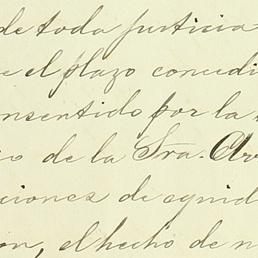 de toda justicia
e el plazo concedi
nsentido por la
io de la Sra. Ar
ciones de
on, el hecho de n